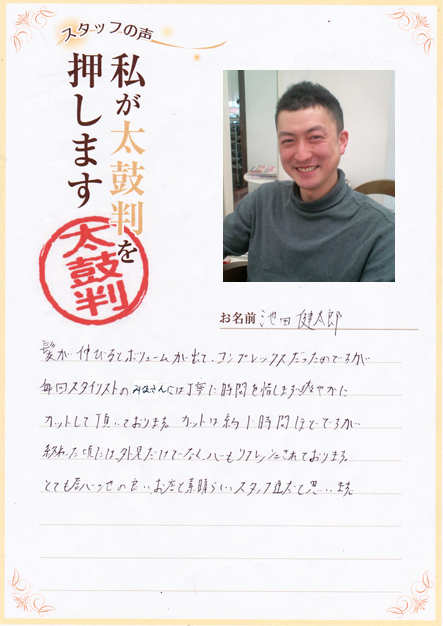 スタッフの声
私が太鼓判を
押します
太鼓判
お名前 池田 健太郎
髪が伸びるとボリュームが出て、コンプレックスだったのですが
毎回スタイリストのみなさんには丁寧に時間を惜しまず爽やかに
カットして頂いております。カットは約1時間ほどですが
終わった頃には、外見だけでなく、心もリフレッシュされております。
とても居心地の良いお店で素晴らしいスタッフ達だと思います。